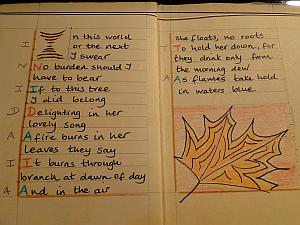 In this world
or the next
I swear
No burden should I
have to bear
If to this tree
I did belong
Delighting in her
lovely song
A fire burns in her
leaves they say
It burns through
branch at dawn of day
And in the air
I
N
I
D
A
I
A
she floats, no roots
To hold her down, for
they drink only from
the morning dew
As flames take hold
in waters blue
T
A